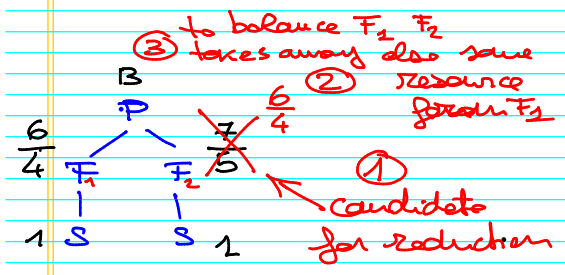 to balance F1 F2
③ takes away also some
② resource
from F1
B
P
6/4
7/5
6/4
F1
F2
①
candidate
for reduction
1 S
S 1